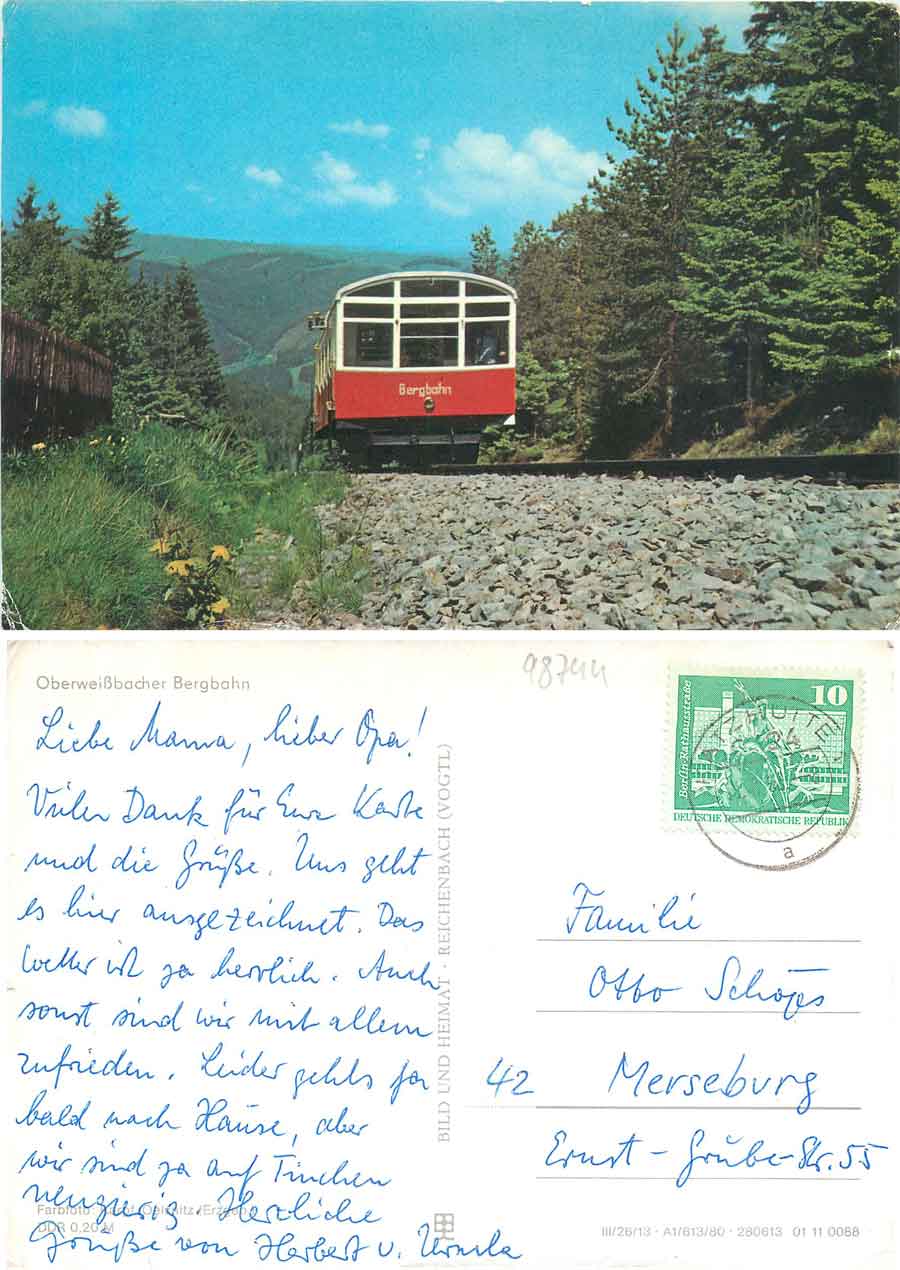 Bergbahn
Oberweißbacher Bergbahn
98744
Liebe Mama, lieber Opa!
Vielen Dank für Eure Karte
und die Grüße. Uns geht
es hier ausgezeichnet. Das
Wetter ist ja herrlich. Auch
sonst sind wir mit allem
zufrieden. Leider gehts ja
bald nach Hause, aber
wir sind ja auf Tinchen
neugierig. Herzliche
Grüße von Herbert u. Ursula
Farbfoto: Oelsnitz (Erzgeb.)
DDR 0,20 M
BILD UND HEIMAT · REICHENBACH (VOGTL)
10
Berlin, Rathausstraße
DEUTSCHE DEMOKRATISCHE REPUBLIK
a
Familie
Otto Schöps
42 Merseburg
Ernst-Grube-Str. 55
III/26/13 · A1/613/80 · 280613 01 11 0088